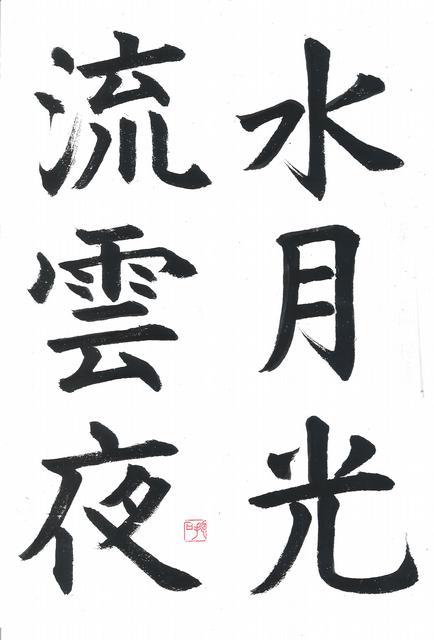 水月光
流雲夜